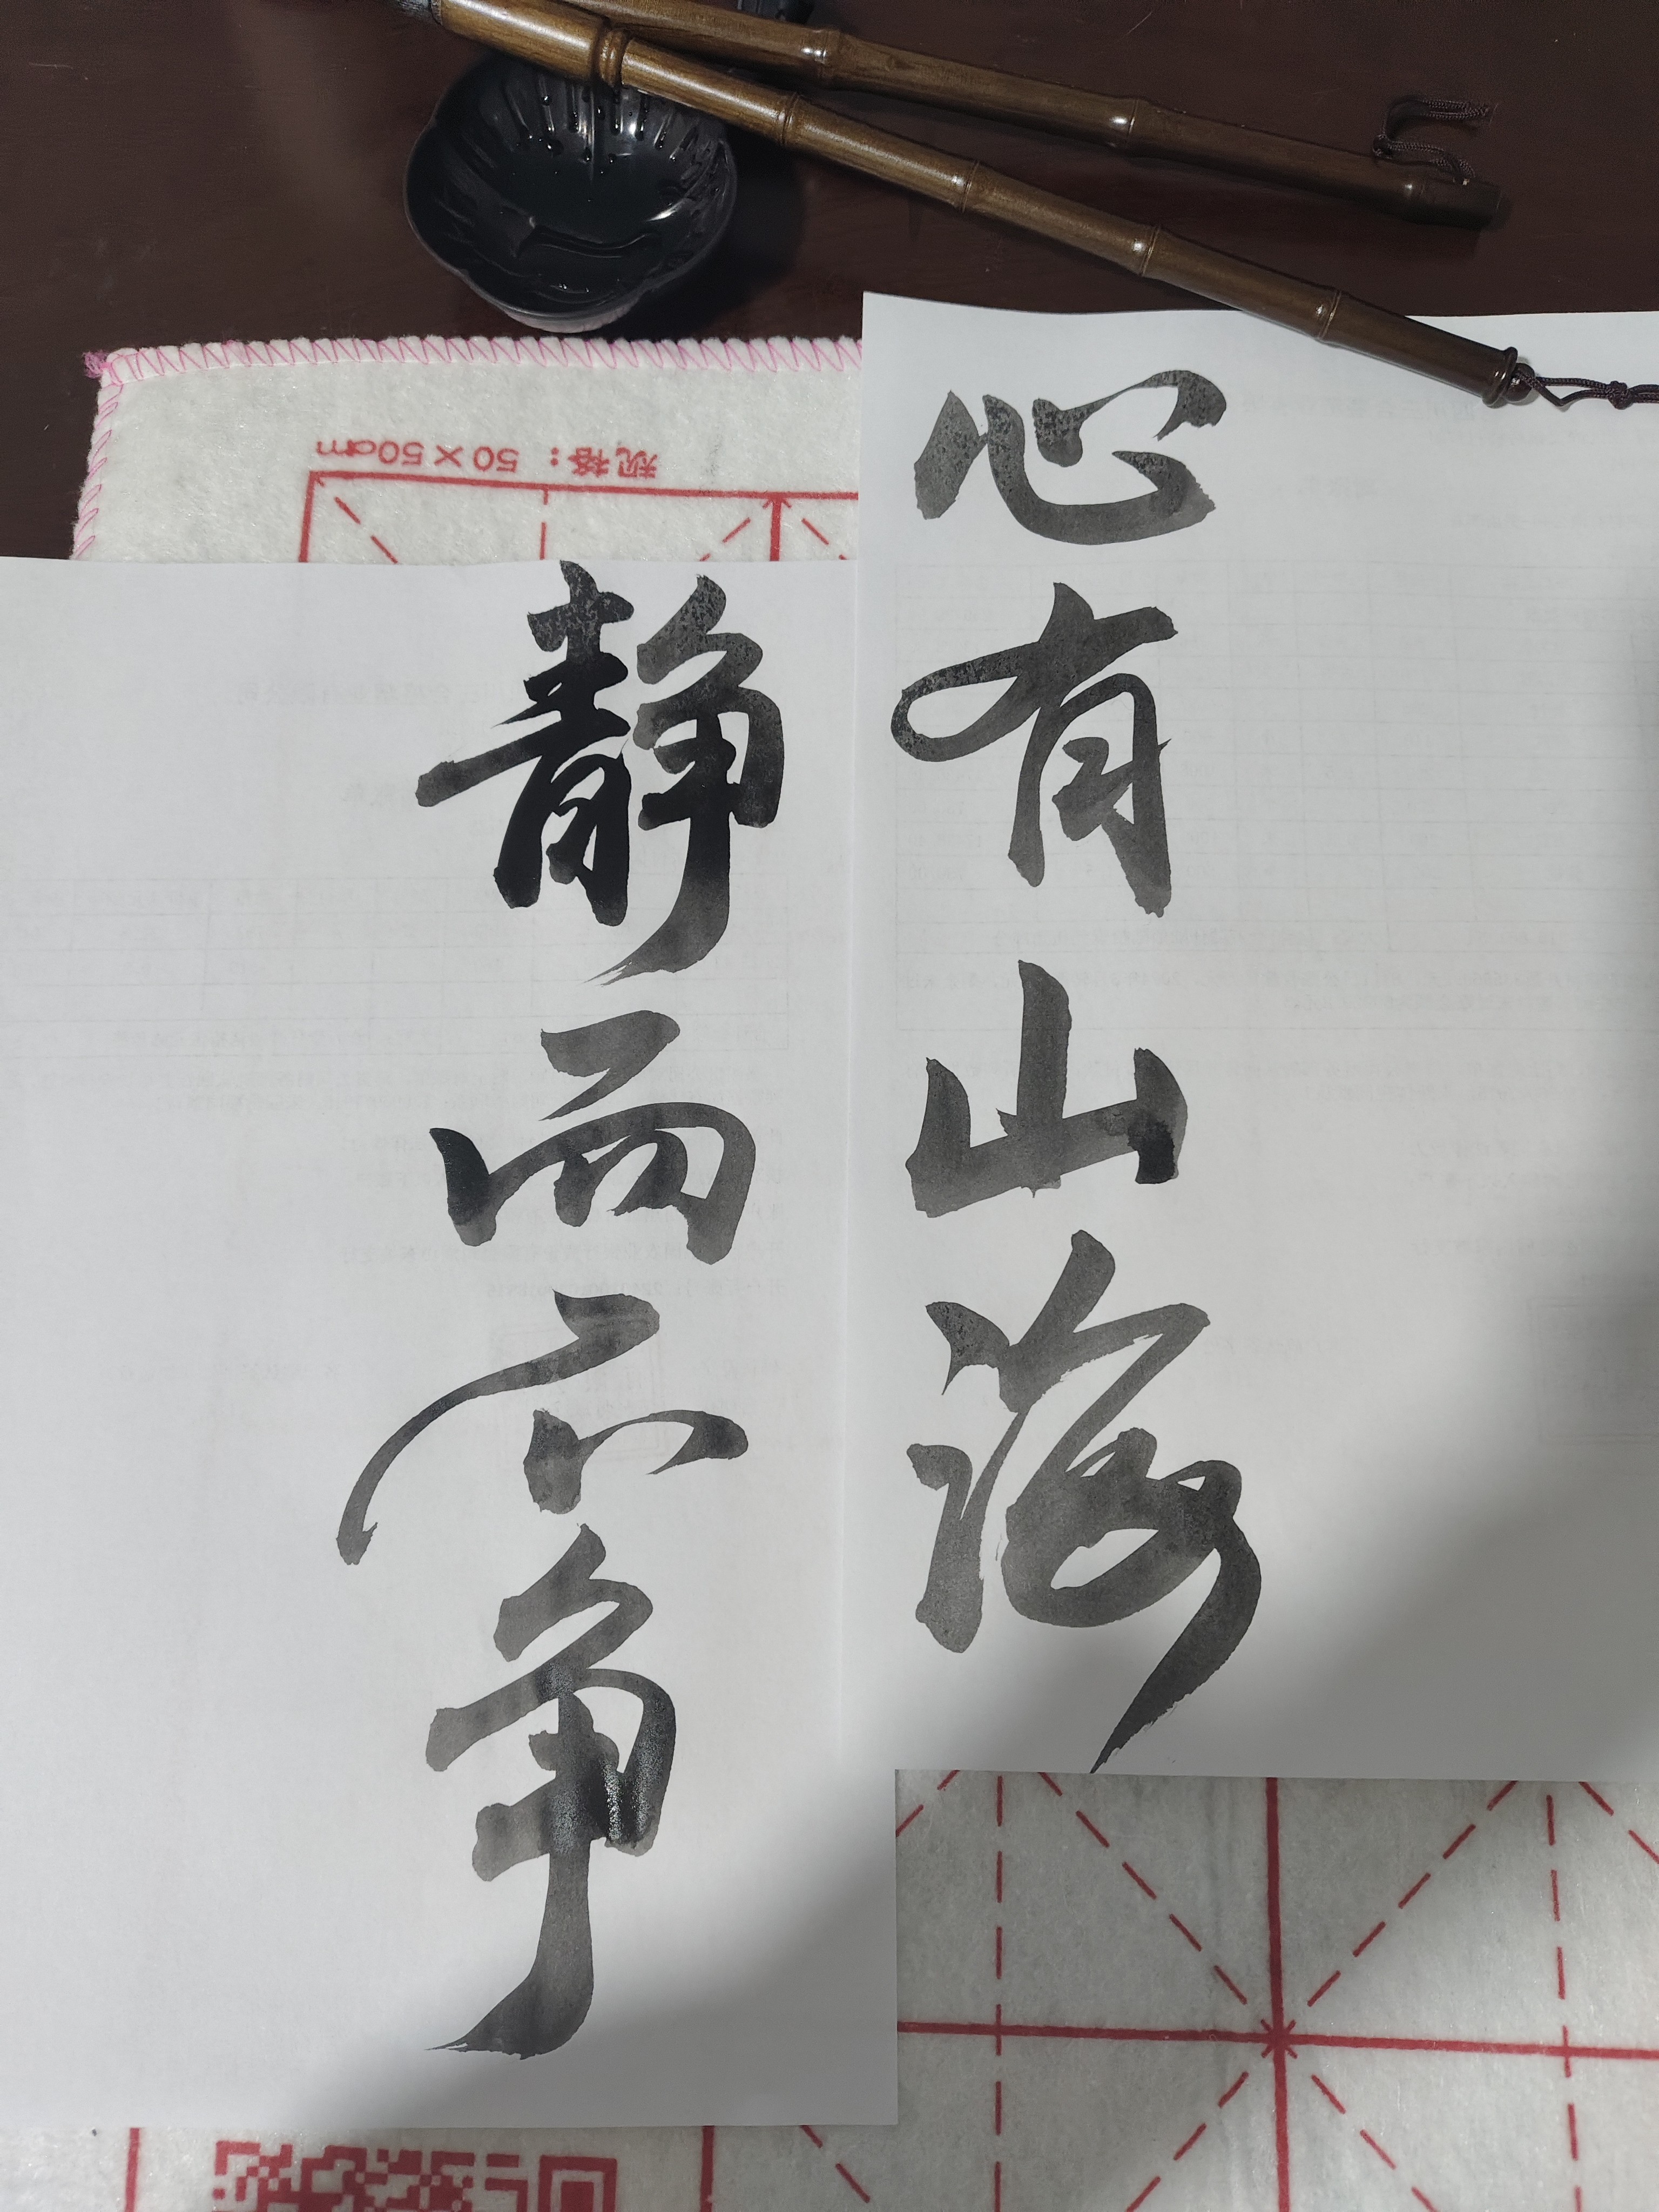 心有山海
静而不争
规格：50×50cm